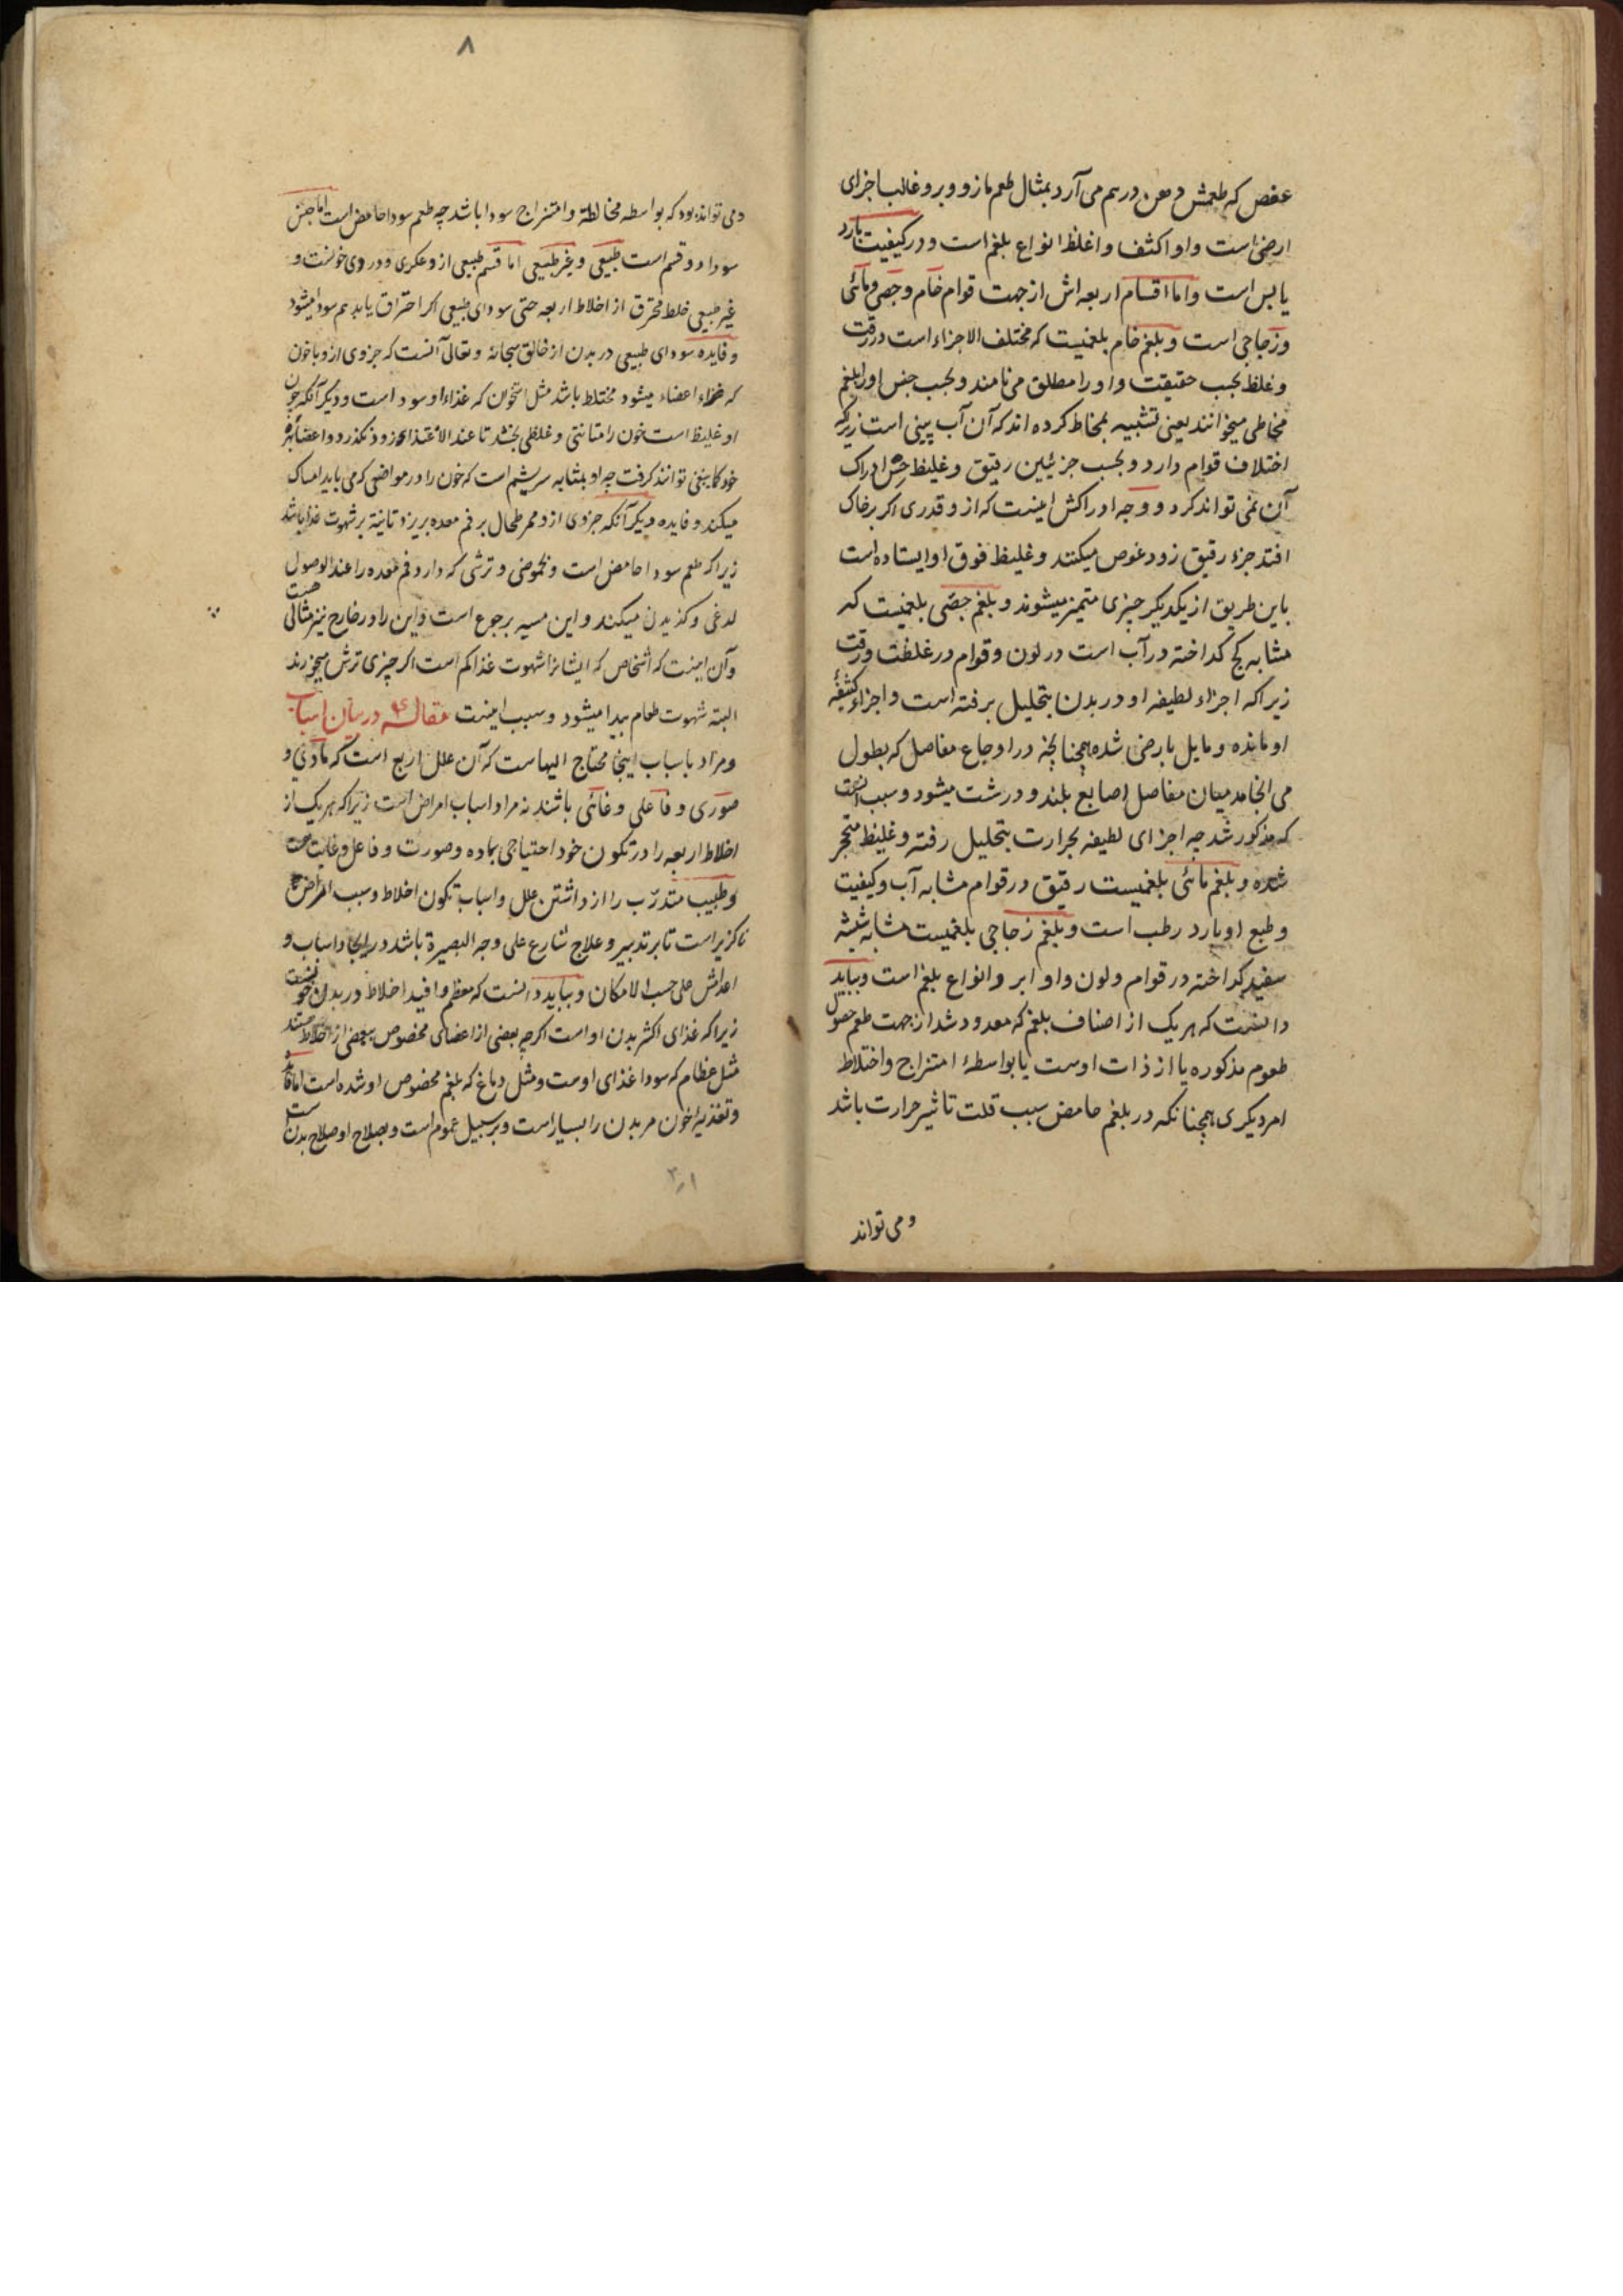 عفص که طعمش دهن درهم می آرد بمثال طعم مازو و برو غالب اجزای
ارضی است و او اکثف و اغلظ انواع بلغم است و در کیفیت بارد
یابس است و اما اقسام اربعه اش از جهت قوام خام و جصی و مائی
و زجاجی است و بلغم خام بلغمیست که مختلف الاجزاء است در رقت
و غلظ بحسب حقیقت و او را مطلق می نامند و بحسب حس او را بلغم
مخاطی میخوانند یعنی تشبیه بمخاط کرده اند که آن آب بینی است زیرا که
اختلاف قوام دارد و بحسب جزئیین رقیق و غلیظ حس ادراک
آن نمی تواند کرد و وجه ادراکش اینست که ازو قدری اگر بر خاک
افتد جزء رقیق زود غوص میکند و غلیظ فوق او ایستاده است
باین طریق از یکدیگر چیزی متمیز میشوند و بلغم جصی بلغمیست که
مشابه گچ گداخته در آب است در لون و قوام در غلظت و رقت
زیرا که اجزاء لطیفه او در بدن بتحلیل برفته است و اجزاء کثیفهٔ
او مانده و مایل بارضی شده همچنانچه در اوجاع مفاصل که بطول
می انجامد میان مفاصل اصابع بلند و درشت میشود و سبب آنست
که مذکور شد چه اجزای لطیفه بحرارت بتحلیل رفته و غلیظ متحجر
شده و بلغم مائی بلغمیست رقیق در قوام مشابه آب و کیفیت
و طبع او بارد رطب است و بلغم زجاجی بلغمیست مشابه شیشه
سفید گداخته در قوام و لون و او ابرد انواع بلغم است و بباید
دانست که هر یک از اصناف بلغم که معدود شد از جهت طعم حصول
طعوم مذکوره یا از ذات اوست یا بواسطهٔ امتزاج و اختلاط
امر دیگری همچنانکه در بلغم حامض سبب قلت تاثیر حرارت باشد
و می تواند
۸
و می تواند بود که بواسطه مخالطة و امتزاج سودا باشد چه طعم سودا حامض است اما جنس
سودا دو قسم است طبیعی و غیر طبیعی اما قسم طبیعی ازو عکری و دردی خونست و
غیر طبیعی خلط محترق از اخلاط اربعه حتی سودای طبیعی اگر احتراق یابد هم سودا میشود
و فایده سودای طبیعی در بدن از خالق سبحانه و تعالی آنست که جزوی ازو با خون
که غذاء اعضاء میشود مختلط باشد مثل استخوان که غذاء او سودا است و دیگر آنکه چون
او غلیظ است خون را متانتی و غلظی بخشد تا عند الاغتذاء زود نگذرد و اعضا بهره
خود کما ینبغی توانند گرفت چه او بمثابه سریشم است که خون را در مواضعی که می باید امساک
میکند و فایده دیگر آنکه جزوی ازو ممر طحال بر فم معده بریزد تا تنبیه بر شهوت غذا باشد
زیرا که طعم سودا حامض است و بحموضی و ترشی که دارد فم معده را عند الوصول
لدغی و گزیدن میکند و این مسیر برجوع است و این را در خارج نیز مثالی هست
و آن اینست که اشخاص که ایشانرا شهوت غذا کم است اگر چیزی ترش میخورند
البته شهوت طعام پیدا میشود و سبب اینست مقاله در بیان اسباب
و مراد باسباب اینجا محتاج الیهاست که آن علل اربع است که مادی و
صوری و فاعلی و غائی باشند نه مراد اسباب امراض است زیرا که هر یک از
اخلاط اربعه را در تکون خود احتیاجی بماده و صورت و فاعل و غایت هست
و طبیب متدرب را از داشتن علل و اسباب تکون اخلاط و سبب امراض
ناگزیر است تا بر تدبیر و علاج شارع علی وجه البصیرة باشد در ایجاد اسباب و
اعدامش علی حسب الامکان و بباید دانست که معظم و افید اخلاط در بدن خونست
زیرا که غذای اکثر بدن او است اگرچه بعضی از اعضای مخصوص ببعضی از اخلاط هستند
مثل عظام که سودا غذای اوست و مثل دماغ که بلغم مخصوص او شده است اما فایده
و تغذیهٔ خون مر بدن را بسیار است و بر سبیل عموم است و بصلاح او صلاح بدن است